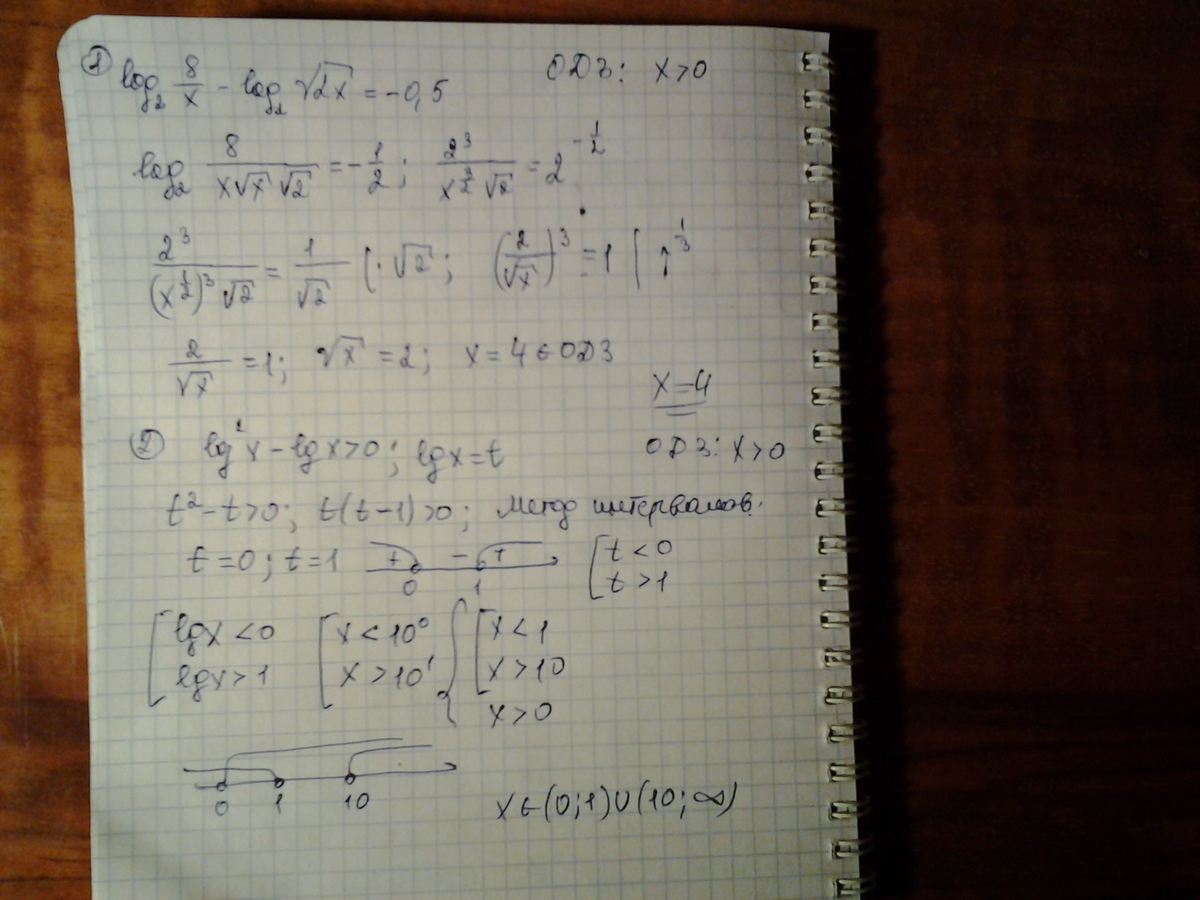 ① log₂ 8/x - log₂ √(2x) = -0,5 ОДЗ: x>0
log₂ 8/(x√x √2) = -1/2; 2³/(x^(3/2) √2) = 2^(-1/2)
2³/((x^(1/2))³ √2) = 1/√2 | · √2; (2/√x)³ = 1 | ↑^(1/3)
2/√x = 1; √x = 2; x = 4 ∈ ОДЗ
x=4
② lg²x - lgx>0; lgx=t ОДЗ: x>0
t²-t>0; t(t-1)>0; метод интервалов.
t=0; t=1 + - + [ t<0
0 1 t>1
[ lgx<0 [ x<10⁰ { [ x<1
lgx>1 x>10¹ x>10
x>0
0 1 10
x∈(0;1)∪(10;∞)